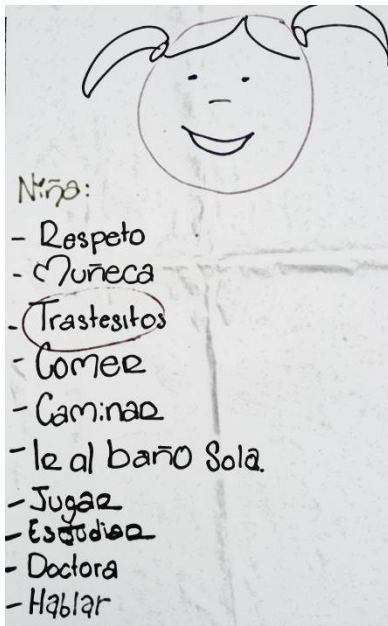 Niña:
- Respeto
- Muñeca
- Trastesitos
- Comer
- Caminar
- Ir al baño Sola.
- Jugar
- Estudiar
- Doctora
- Hablar